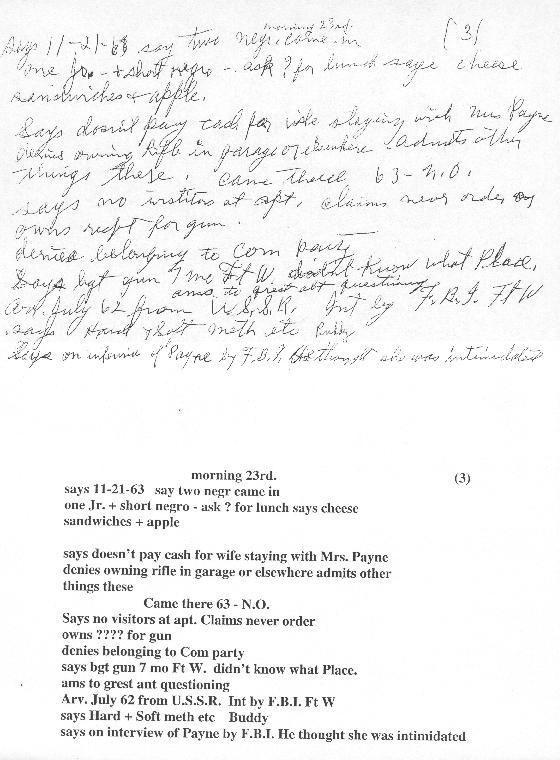 morning 23rd.
says 11-21-63 say two negr. came in (3)
one Jr. - + short negro - ask ? for lunch says cheese
sandwiches + apple.
Says doesn't pay cash for wife staying with Mrs Payne
denies owning rifle in garage or elsewhere admits other
things these. Came there 63 - N.O.
says no visitors at apt. Claims never order
owns rept for gun.
denies belonging to Com party
Says bgt gun 7 mo Ft W. didn't know what Place.
ams to grest abt questioning
Arv. July 62 from U.S.S.R. Int by F.B.I. Ft W
says Hard + Soft meth etc Buddy
Says on interview of Payne by F.B.I. He thought she was intimidated
morning 23rd. (3)
says 11-21-63 say two negr came in
one Jr. + short negro - ask ? for lunch says cheese
sandwiches + apple
says doesn't pay cash for wife staying with Mrs. Payne
denies owning rifle in garage or elsewhere admits other
things these
Came there 63 - N.O.
Says no visitors at apt. Claims never order
owns ???? for gun
denies belonging to Com party
says bgt gun 7 mo Ft W. didn't know what Place.
ams to grest ant questioning
Arv. July 62 from U.S.S.R. Int by F.B.I. Ft W
says Hard + Soft meth etc Buddy
says on interview of Payne by F.B.I. He thought she was intimidated